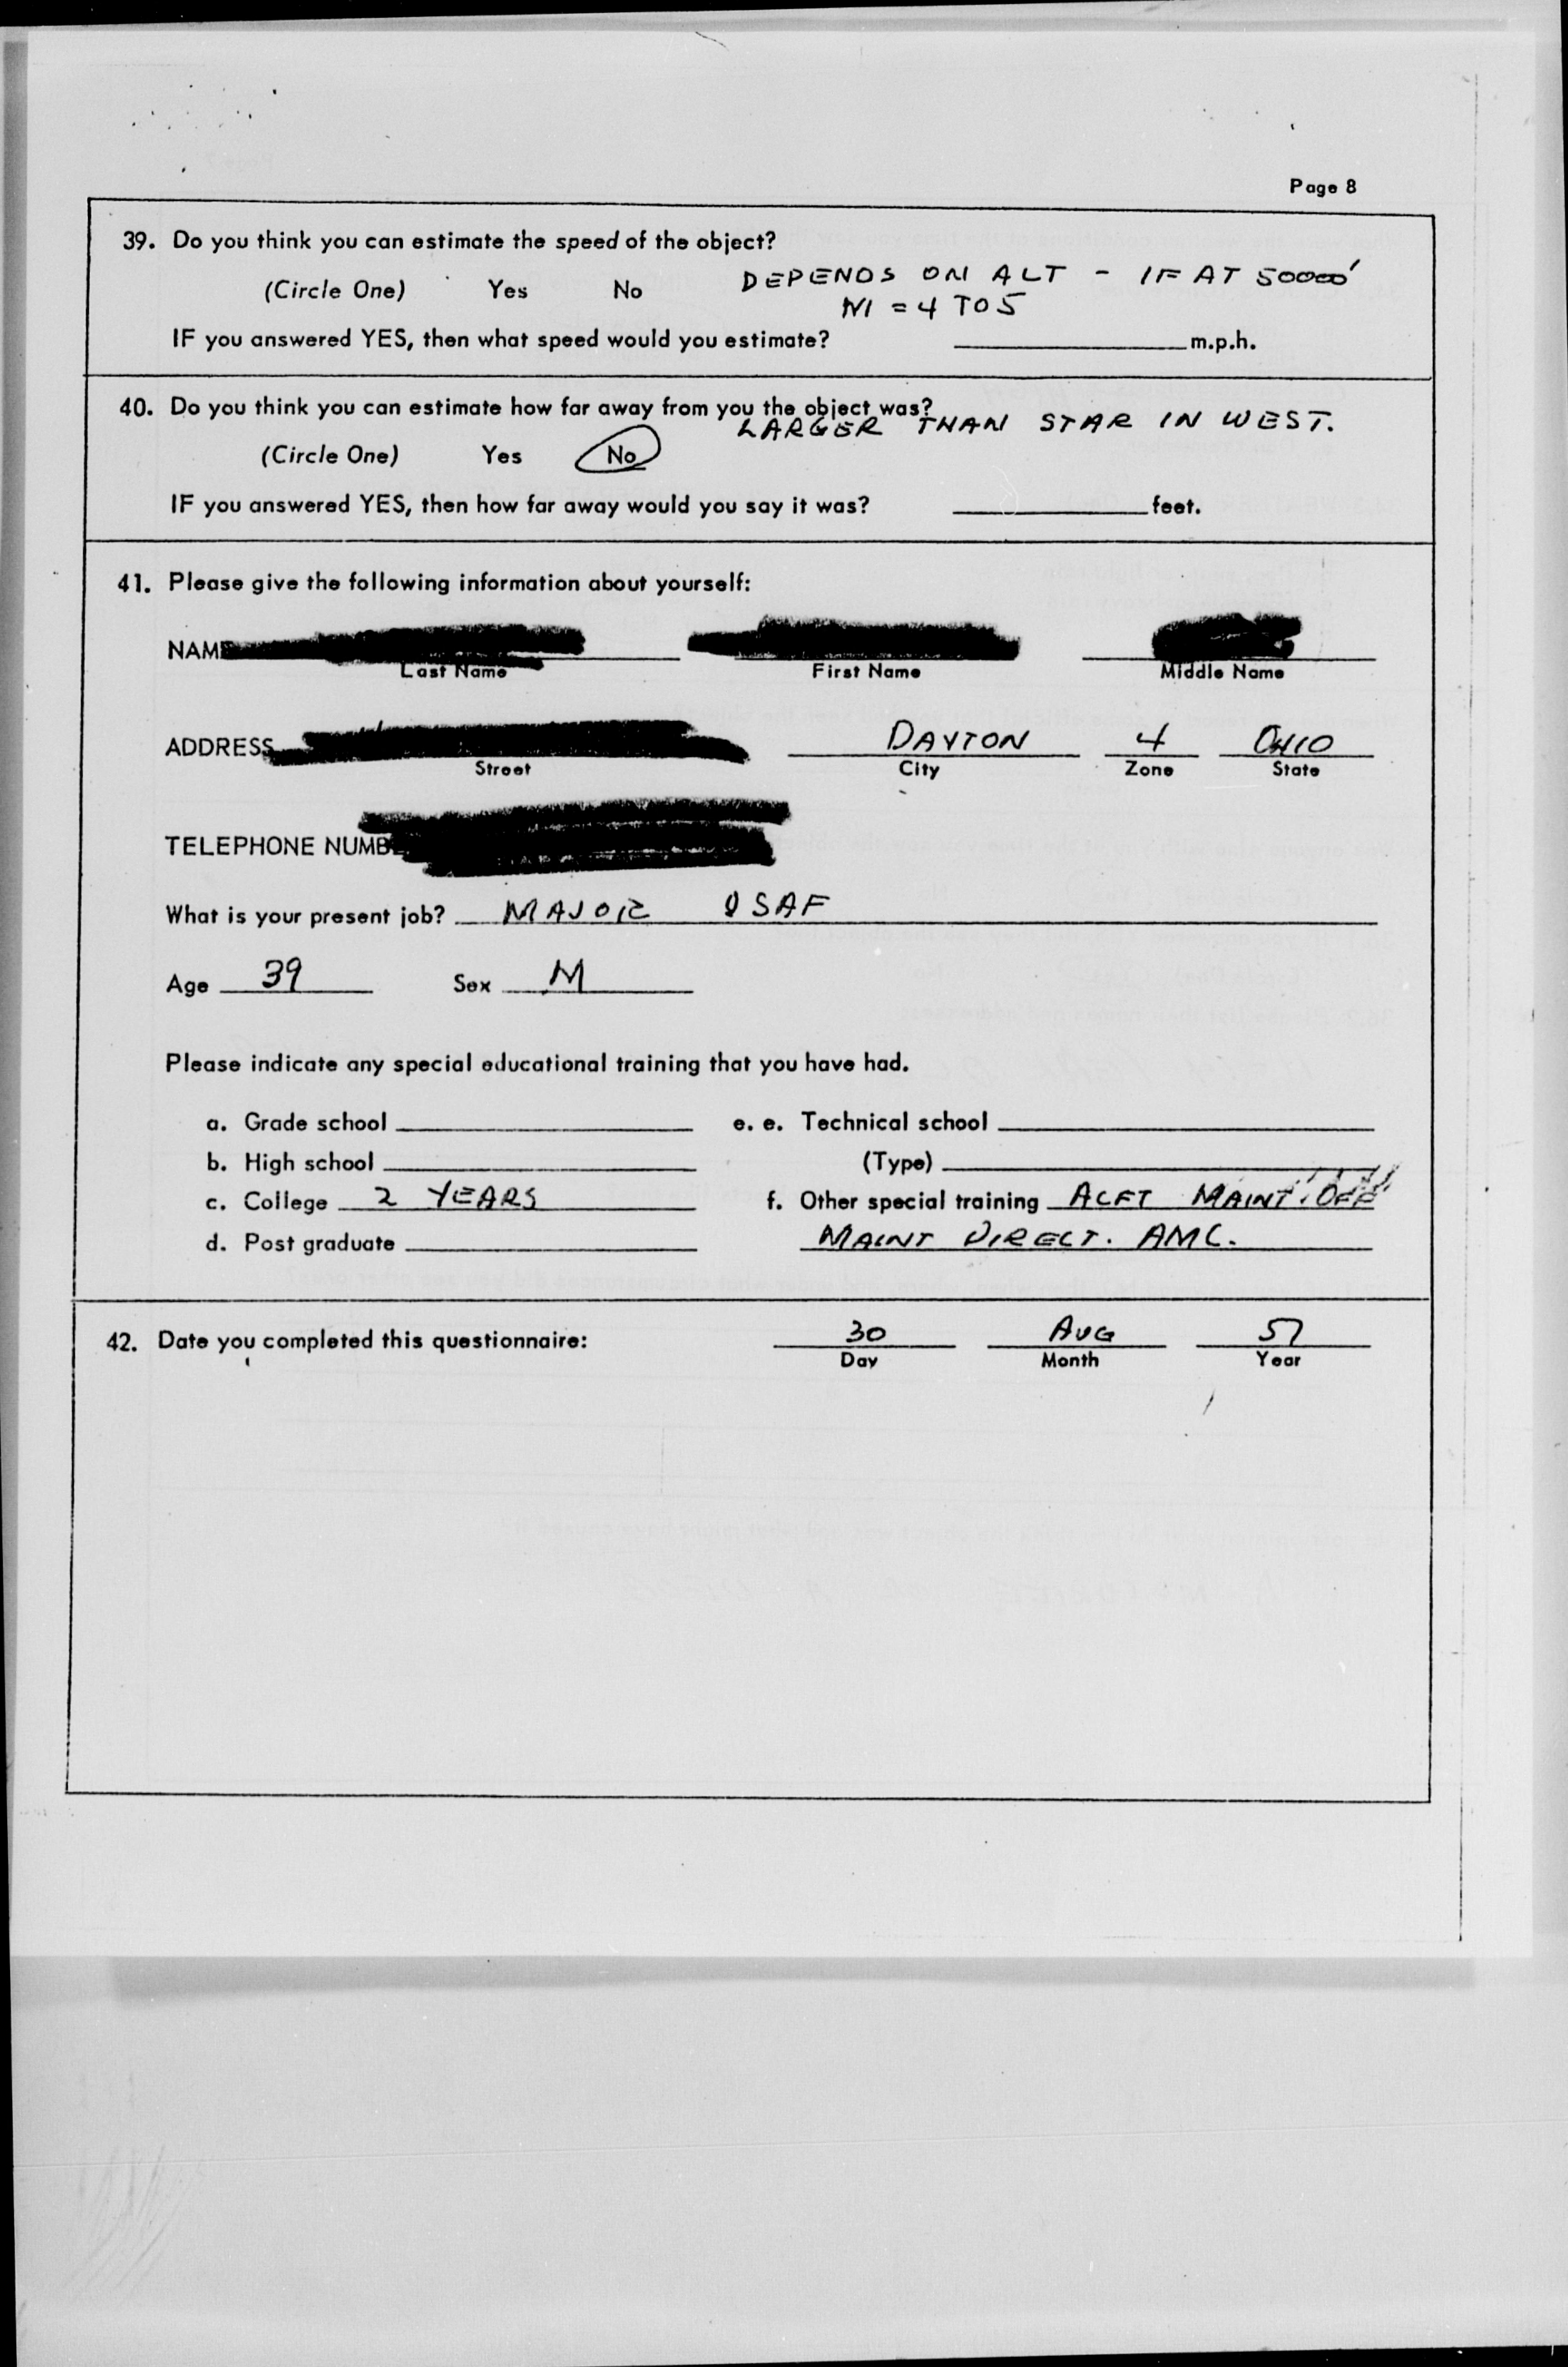 Page 8
39. Do you think you can estimate the speed of the object?
(Circle One) Yes No DEPENDS ON ALT - IF AT 50000'
M = 4 TO 5
IF you answered YES, then what speed would you estimate? m.p.h.
40. Do you think you can estimate how far away from you the object was?
LARGER THAN STAR IN WEST.
(Circle One) Yes No
IF you answered YES, then how far away would you say it was? feet.
41. Please give the following information about yourself:
NAME
Last Name First Name Middle Name
ADDRESS DAYTON 4 OHIO
Street City Zone State
TELEPHONE NUMBE
What is your present job? MAJOR USAF
Age 39 Sex M
Please indicate any special educational training that you have had.
a. Grade school e. e. Technical school
b. High school (Type)
c. College 2 YEARS f. Other special training ACFT MAINT. OFF
d. Post graduate MAINT DIRECT. AMC.
42. Date you completed this questionnaire: 30 AUG 57
Day Month Year